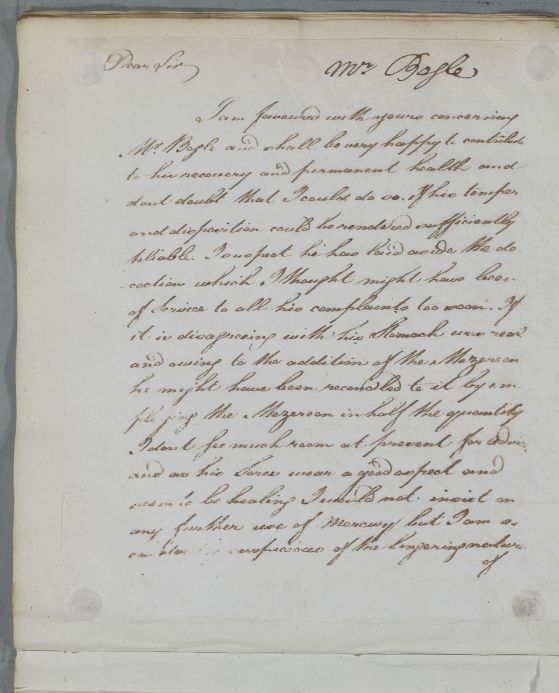 Dear Sir
Mr. Bogle
I am favoured with yours concerning
Mr. Bogle and shall be very happy to contribute
to his recovery and permanent health and
dont doubt that I could do so. If his temper
and disposition could be rendered sufficiently
pliable. I suspect he has laid aside the de
coction which I thought might have been
of Service to all his complaints too soon. If
it is disagreeing with his Stomach was real
and owing to the addition of the Mezereon
he might have been reconciled to it by em
ploying the Mezereon in half the quantity
I dont see much room at present for advice
and as his Sores wear a good aspect and
seem to be healing I would not insist on
any further use of Mercury but I am
suspicious of the lingering nature
of